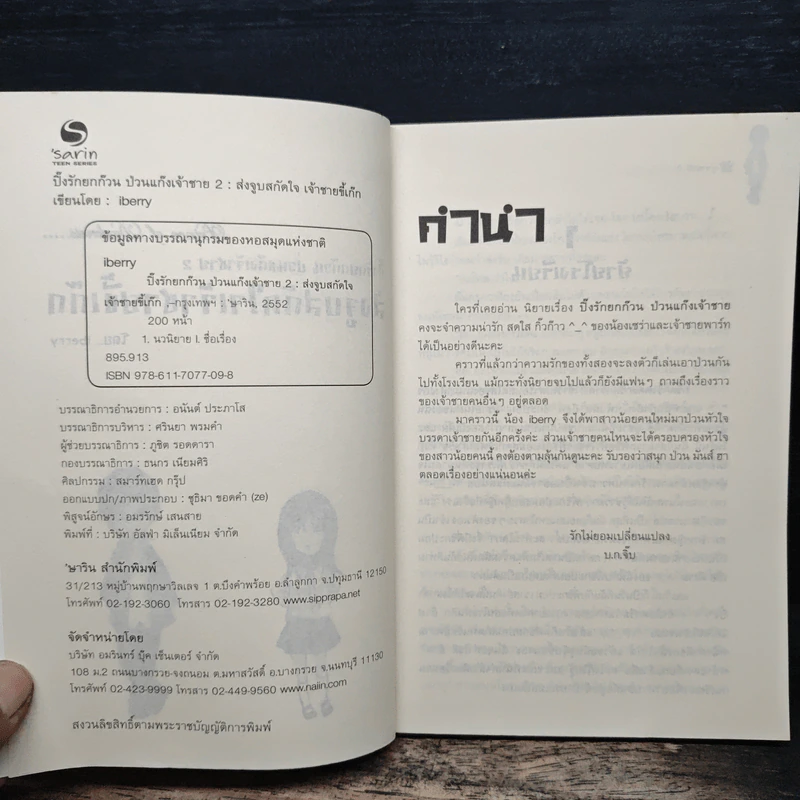 'sarin
TEEN SERIES
ปิ๊งรักยกก๊วน ป่วนแก๊งเจ้าชาย 2 : ส่งจูบสกัดใจ เจ้าชายขี้เก๊ก
เขียนโดย : iberry
ข้อมูลทางบรรณานุกรมของหอสมุดแห่งชาติ
iberry
ปิ๊งรักยกก๊วน ป่วนแก๊งเจ้าชาย 2 : ส่งจูบสกัดใจ
เจ้าชายขี้เก๊ก .-กรุงเทพฯ : 'ษาริน, 2552
200 หน้า
1. นวนิยาย I. ชื่อเรื่อง
895.913
ISBN 978-611-7077-09-8
บรรณาธิการอำนวยการ : อนันต์ ประภาโส
บรรณาธิการบริหาร : ศรินยา พรมคำ
ผู้ช่วยบรรณาธิการ : ภูชิต รอดดารา
กองบรรณาธิการ : ธนกร เนียมศิริ
ศิลปกรรม : สมาร์ทเฮด กรุ๊ป
ออกแบบปก/ภาพประกอบ : ชุธิมา ขอดคำ (ze)
พิสูจน์อักษร : อมรรักษ์ เสนสาย
พิมพ์ที่ : บริษัท อัลฟ่า มิเล็นเนียม จำกัด
'ษาริน สำนักพิมพ์
31/213 หมู่บ้านพฤกษาวิลเลจ 1 ต.บึงคำพร้อย อ.ลำลูกกา จ.ปทุมธานี 12150
โทรศัพท์ 02-192-3060 โทรสาร 02-192-3280 www.sipprapa.net
จัดจำหน่ายโดย
บริษัท อมรินทร์ บุ๊ค เซ็นเตอร์ จำกัด
108 ม.2 ถนนบางกรวย-จงถนอม ต.มหาสวัสดิ์ อ.บางกรวย จ.นนทบุรี 11130
โทรศัพท์ 02-423-9999 โทรสาร 02-449-9560 www.naiin.com
สงวนลิขสิทธิ์ตามพระราชบัญญัติการพิมพ์
คำนำ
ใครที่เคยอ่าน นิยายเรื่อง ปิ๊งรักยกก๊วน ป่วนแก๊งเจ้าชาย
คงจะจำความน่ารัก สดใส กิ๊วก๊าว ^_^ ของน้องเชว่าและเจ้าชายพาร์ท
ได้เป็นอย่างดีนะคะ
คราวที่แล้วกว่าความรักของทั้งสองจะลงตัวก็เล่นเอาป่วนกัน
ไปทั้งโรงเรียน แม้กระทั่งนิยายจบไปแล้วก็ยังมีแฟนๆ ถามถึงเรื่องราว
ของเจ้าชายคนอื่นๆ อยู่ตลอด
มาคราวนี้ น้อง iberry จึงได้พาสาวน้อยคนใหม่มาป่วนหัวใจ
บรรดาเจ้าชายกันอีกครั้งค่ะ ส่วนเจ้าชายคนไหนจะได้ครอบครองหัวใจ
ของสาวน้อยคนนี้ คงต้องตามลุ้นกันดูนะคะ รับรองว่าสนุก ป่วน มันส์ ฮา
ตลอดเรื่องอย่างแน่นอนค่ะ
รักไม่ยอมเปลี่ยนแปลง
บ.ก.จิ๊บ